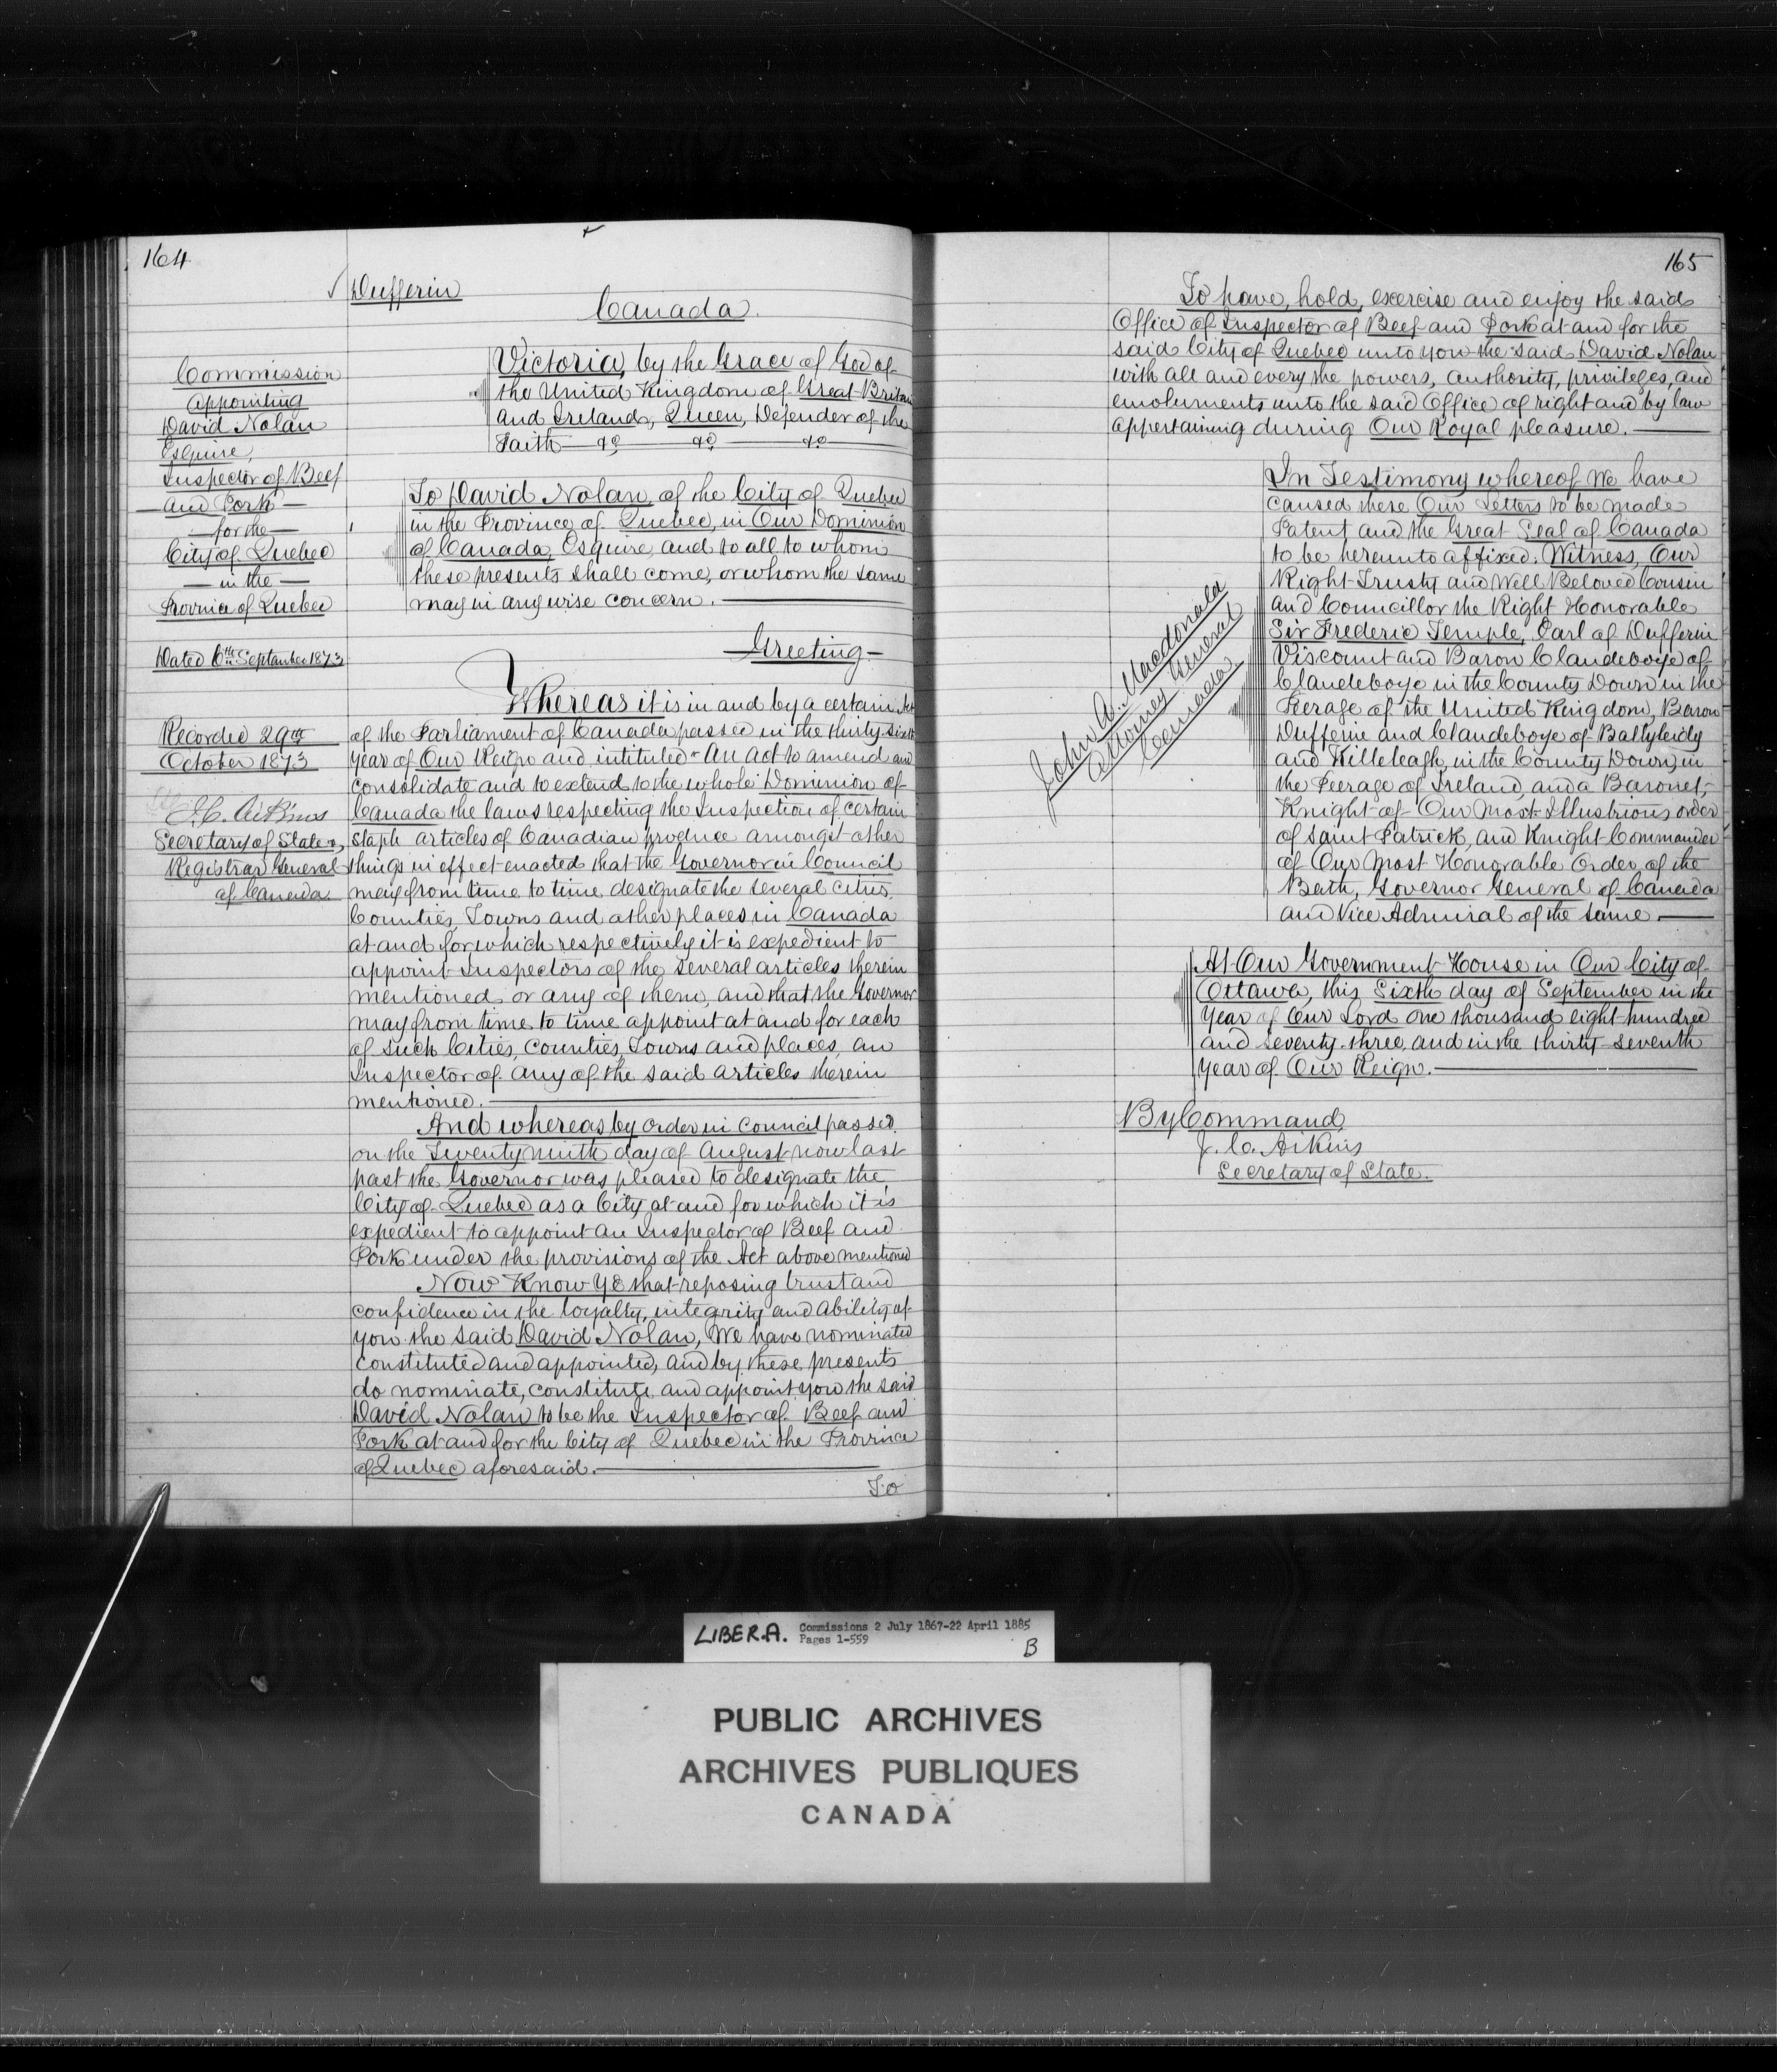 164
Dufferin
Canada.
Commission
appointing
David Nolan
Esquire,
Inspector of Beef
and Pork
for the
City of Quebec
in the
Province of Quebec
Dated 6th September 1873
Recorded 29th
October 1873
J.C. Aikins
Secretary of State &
Registrar General
of Canada.
Victoria, by the Grace of God of
the United Kingdom of Great Britain
and Ireland, Queen, Defender of the
Faith &c &c &c
To David Nolan, of the City of Quebec
in the Province of Quebec, in Our Dominion
of Canada, Esquire, and to all to whom
these presents shall come, or whom the same
may in any wise concern.
Greeting
Whereas it is in and by a certain Act
of the Parliament of Canada passed in the thirty sixth
year of Our Reign and intituled "An Act to amend and
consolidate and to extend to the whole Dominion of
Canada the laws respecting the Inspection of certain
staple articles of Canadian produce amongst other
things in effect enacted that the Governor in Council
may from time to time designate the several cities,
Counties, Towns and other places in Canada
at and for which respectively it is expedient to
appoint Inspectors of the several articles therein
mentioned or any of them, and that the Governor
may from time to time appoint at and for each
of such Cities, Counties, Towns and places, an
Inspector of any of the said articles therein
mentioned.
And whereas by order in Council passed
on the Twenty ninth day of August now last
past the Governor was pleased to designate the
City of Quebec as a City at and for which it is
expedient to appoint an Inspector of Beef and
Pork under the provisions of the Act above mentioned
Now Know Ye that reposing trust and
confidence in the loyalty, integrity and ability of
you the said David Nolan, We have nominated
constituted and appointed, and by these presents
do nominate, constitute and appoint you the said
David Nolan to be the Inspector of Beef and
Pork at and for the City of Quebec in the Province
of Quebec aforesaid.
To
165
To have, hold, exercise and enjoy the said
Office of Inspector of Beef and Pork at and for the
said City of Quebec unto you the said David Nolan
with all and every the powers, authority, privileges, and
emoluments unto the said Office of right and by law
appertaining during Our Royal pleasure.
In Testimony whereof We have
caused these Our Letters to be made
Patent and the Great Seal of Canada
to be hereunto affixed. Witness, Our
Right Trusty and Well Beloved Cousin
and Councillor the Right Honorable
Sir Frederic Temple, Earl of Dufferin
Viscount and Baron Clandeboye of
Clandeboye in the County Down in the
Peerage of the United Kingdom, Baron
Dufferin and Clandeboye of Ballyleidy
and Killeleagh, in the County Down, in
the Peerage of Ireland, and a Baronet,
Knight of Our Most Illustrious order
of Saint Patrick, and Knight Commander
of Our Most Honorable Order of the
Bath, Governor General of Canada
and Vice Admiral of the same
John A. Macdonald
Attorney General
Canada
At Our Government House in Our City of
Ottawa, this Sixth day of September in the
year of Our Lord one thousand eight hundred
and seventy three, and in the thirty seventh
year of Our Reign.
By Command
J. C. Aikins
Secretary of State.
LIBER.A. Commissions 2 July 1867-22 April 1885
Pages 1-559
B
PUBLIC ARCHIVES
ARCHIVES PUBLIQUES
CANADA